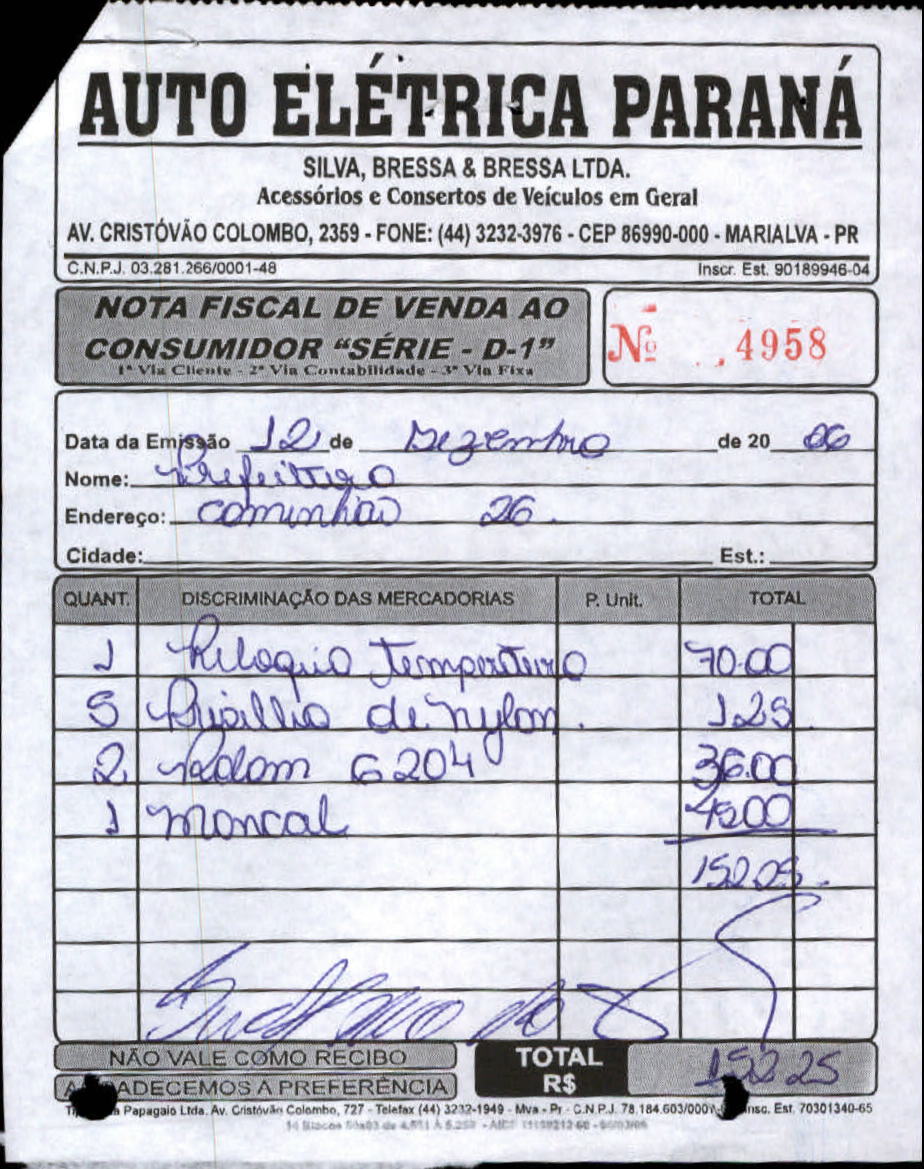 AUTO ELÉTRICA PARANÁ
SILVA, BRESSA & BRESSA LTDA.
Acessórios e Consertos de Veículos em Geral
AV. CRISTÓVÃO COLOMBO, 2359 - FONE: (44) 3232-3976 - CEP 86990-000 - MARIALVA - PR
C.N.P.J. 03.281.266/0001-48 Inscr. Est. 90189946-04
NOTA FISCAL DE VENDA AO
CONSUMIDOR "SÉRIE - D-1"
1ª Via Cliente - 2ª Via Contabilidade - 3ª Via Fixa
Nº 4958
Data da Emissão 12 de Dezembro de 20 06
Nome: Prefeitura
Endereço: caminhão 26.
Cidade: Est.:
QUANT. DISCRIMINAÇÃO DAS MERCADORIAS P. Unit. TOTAL
1 Relogio Temperatura 70.00
5 de nylon. 1.25
2 Rolam 6204 36.00
1 mancal 45.00
152.25.
NÃO VALE COMO RECIBO
TOTAL R$ 152 25
A ADECEMOS A PREFERÊNCIA
Papagaio Ltda. Av. Cristóvão Colombo, 727 - Telefax (44) 3232-1949 - Mva - Pr - C.N.P.J. 78.184.603/000 Insc. Est. 70301340-65